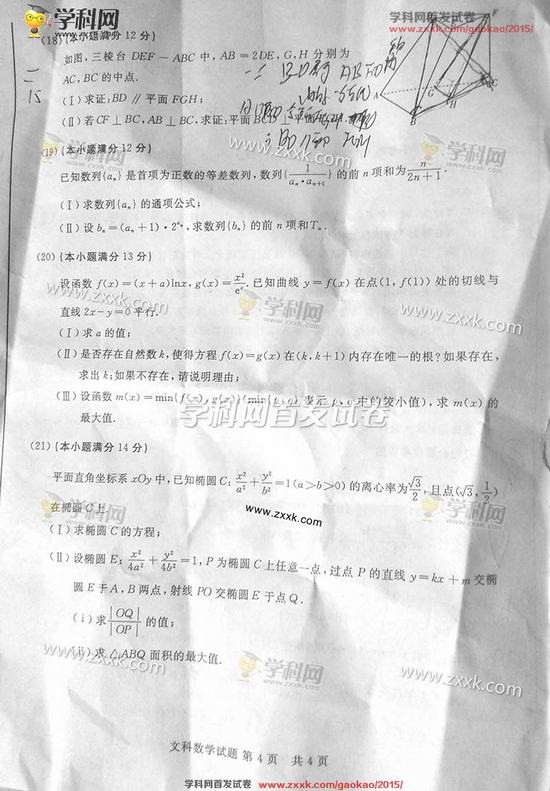 学科网首发试卷
www.zxxk.com/gaokao/2015/
学科网
(18)(本小题满分 12 分)
如图,三棱台 DEF-ABC 中,AB=2DE,G,H 分别为
AC,BC 的中点.
(Ⅰ)求证:BD∥平面 FGH;
(Ⅱ)若 CF⊥BC,AB⊥BC,求证:平面
(19)(本小题满分 12 分)
学科网
已知数列{aₙ}是首项为正数的等差数列,数列{1/(aₙ·aₙ₊₁)}的前 n 项和为 n/(2n+1).
(Ⅰ)求数列{aₙ}的通项公式;
(Ⅱ)设 bₙ=(aₙ+1)·2^{aₙ},求数列{bₙ}的前 n 项和Tₙ.
(20)(本小题满分 13 分)
设函数 f(x)=(x+a)lnx,g(x)=x²/eˣ.已知曲线 y=f(x) 在点(1,f(1))处的切线与
直线 2x-y=0 平行.
www.zxxk.com
学科网
www.zxxk.com
(Ⅰ)求 a 的值;
(Ⅱ)是否存在自然数 k,使得方程 f(x)=g(x) 在(k,k+1)内存在唯一的根?如果存在,
求出 k;如果不存在,请说明理由;
(Ⅲ)设函数 m(x)=min{f(x),g(x)}(min{p,q}表示 p,q 中的较小值),求 m(x)的
最大值.
学科网首发试卷
(21)(本小题满分 14 分)
平面直角坐标系 xOy 中,已知椭圆 C:x²/a²+y²/b²=1(a>b>0)的离心率为√3/2,且点(√3,1/2)
在椭圆 C 上.
学科网
www.zxxk.com
学科网
(Ⅰ)求椭圆 C 的方程;
(Ⅱ)设椭圆 E:x²/4a²+y²/4b²=1,P 为椭圆 C 上任意一点,过点 P 的直线 y=kx+m 交椭
圆 E 于 A,B 两点,射线 PO 交椭圆 E 于点 Q.
(ⅰ)求|OQ|/|OP|的值;
(ⅱ)求△ABQ 面积的最大值.
www.zxxk.com
学科网
www.zxxk.com
文科数学试题 第 4 页 共 4 页
学科网首发试卷
www.zxxk.com/gaokao/2015/